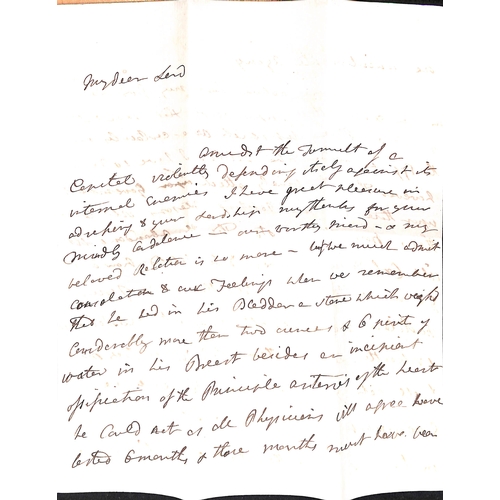 My dear Lord
Amidst the Tumult of a
Capital violently defending itself against its
internal enemies I have great pleasure in
adressing to your Lordship my thanks for your
friendly Condolence — our worthy friend & my
beloved Relation is no more — we must admit
consolation to our Feelings when we remember
that he had in his Bladder a stone which weighd
Considerably more than two ounces & 6 pints of
water in his Breast besides an incipient
ossification of the Principle arteries of the heart
he Could not as all Physicians will agree have
lasted 6 months & those months must have been